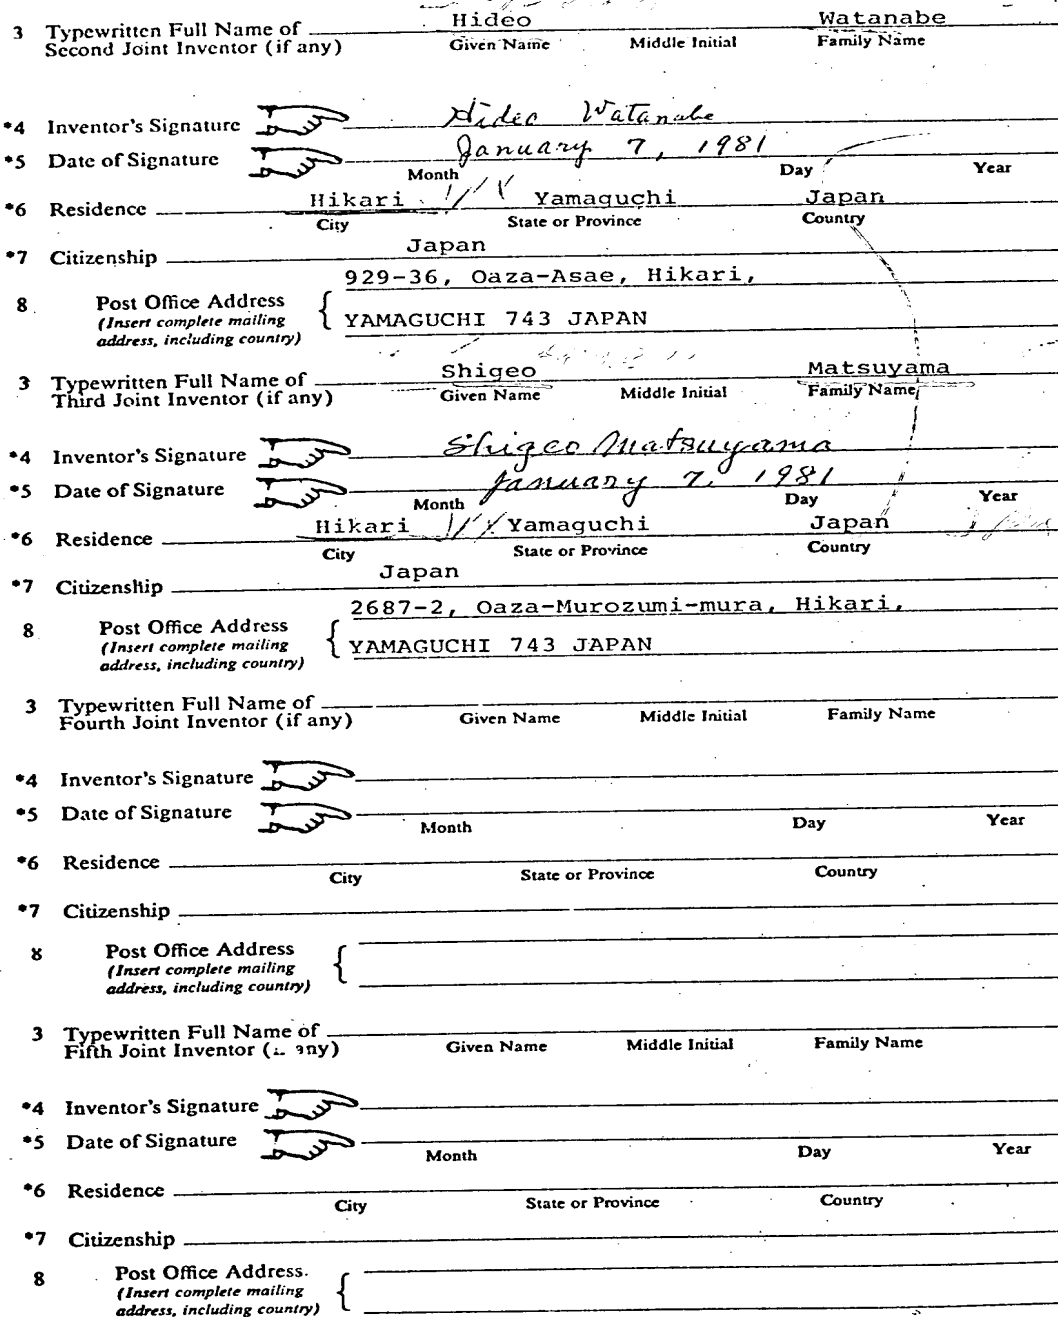 Hideo Watanabe
3 Typewritten Full Name of
Second Joint Inventor (if any) Given Name Middle Initial Family Name
*4 Inventor's Signature Hideo Watanabe
*5 Date of Signature January 7, 1981
Month Day Year
*6 Residence Hikari Yamaguchi Japan
City State or Province Country
*7 Citizenship Japan
929-36, Oaza-Asae, Hikari,
8 Post Office Address
(Insert complete mailing YAMAGUCHI 743 JAPAN
address, including country)
Shigeo Matsuyama
3 Typewritten Full Name of
Third Joint Inventor (if any) Given Name Middle Initial Family Name
*4 Inventor's Signature Shigeo Matsuyama
*5 Date of Signature January 7, 1981
Month Day Year
*6 Residence Hikari Yamaguchi Japan
City State or Province Country
*7 Citizenship Japan
2687-2, Oaza-Murozumi-mura, Hikari,
8 Post Office Address
(Insert complete mailing YAMAGUCHI 743 JAPAN
address, including country)
3 Typewritten Full Name of
Fourth Joint Inventor (if any) Given Name Middle Initial Family Name
*4 Inventor's Signature
*5 Date of Signature
Month Day Year
*6 Residence
City State or Province Country
*7 Citizenship
8 Post Office Address
(Insert complete mailing
address, including country)
3 Typewritten Full Name of
Fifth Joint Inventor ( any) Given Name Middle Initial Family Name
*4 Inventor's Signature
*5 Date of Signature
Month Day Year
*6 Residence
City State or Province Country
*7 Citizenship
8 Post Office Address.
(Insert complete mailing
address, including country)